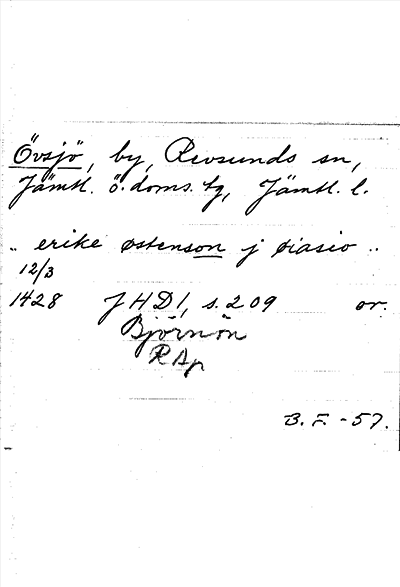 Övsjö, by, Revsunds sn,
Jämtl. ö. doms. tg, Jämtl. l.
.. erike østenson j øiasio ..
12/3
1428 JHD1, s. 209 or.
Björnön
RAp
B. F. -57.